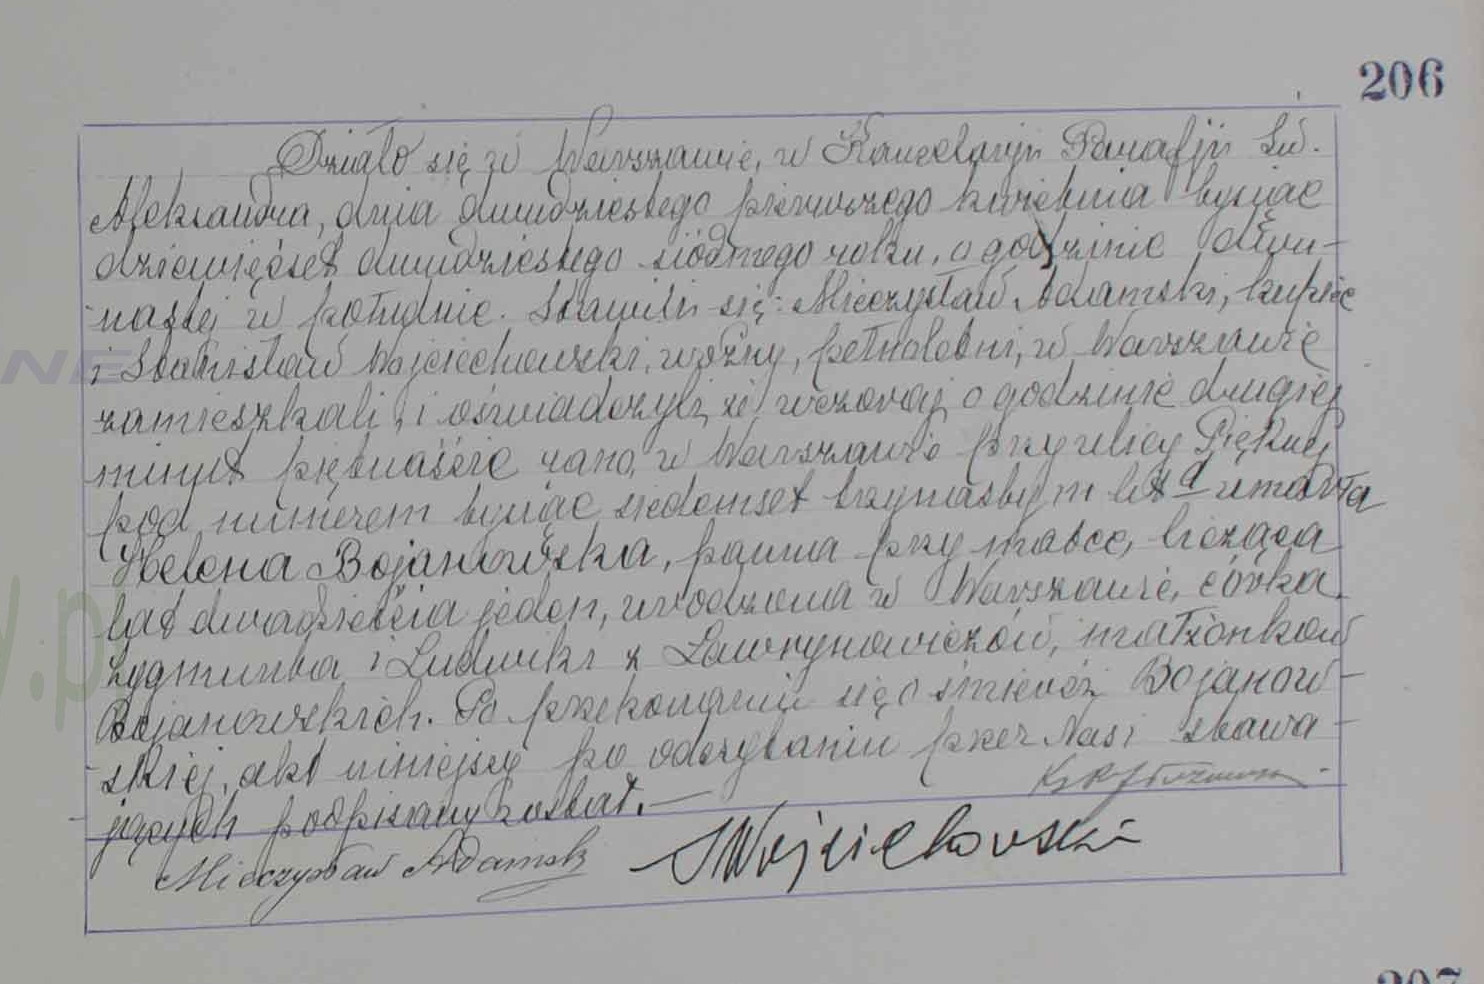 206
Działo się w Warszawie, w Kancelaryji Parafji Św.
Aleksandra, dnia dwudziestego pierwszego kwietnia tysiąc
dziewięćset dwudziestego siódmego roku, o godzinie dwu-
nastej w południe. Stawili się: Mieczysław Adamski, kupiec
i Stanisław Wojciechowski, woźny, pełnoletni, w Warszawie
zamieszkali, i oświadczyli, że wczoraj o godzinie drugiej
minut piętnaście rano, w Warszawie przy ulicy Pięknej
pod numerem tysiąc siedemset trzynastym lit. d umarła
Helena Bojanowska, panna przy matce, licząca
lat dwadzieścia jeden, urodzona w Warszawie, córka
Zygmunta i Ludwiki z Ławrynowiczów, małżonków
Bojanowskich. Po przekonaniu się o śmierci Bojanow-
skiej, akt niniejszy po odczytaniu przez Nas i stawa-
jących podpisany został.—
Mieczysław Adamski SWojciechowski
NE
y.p